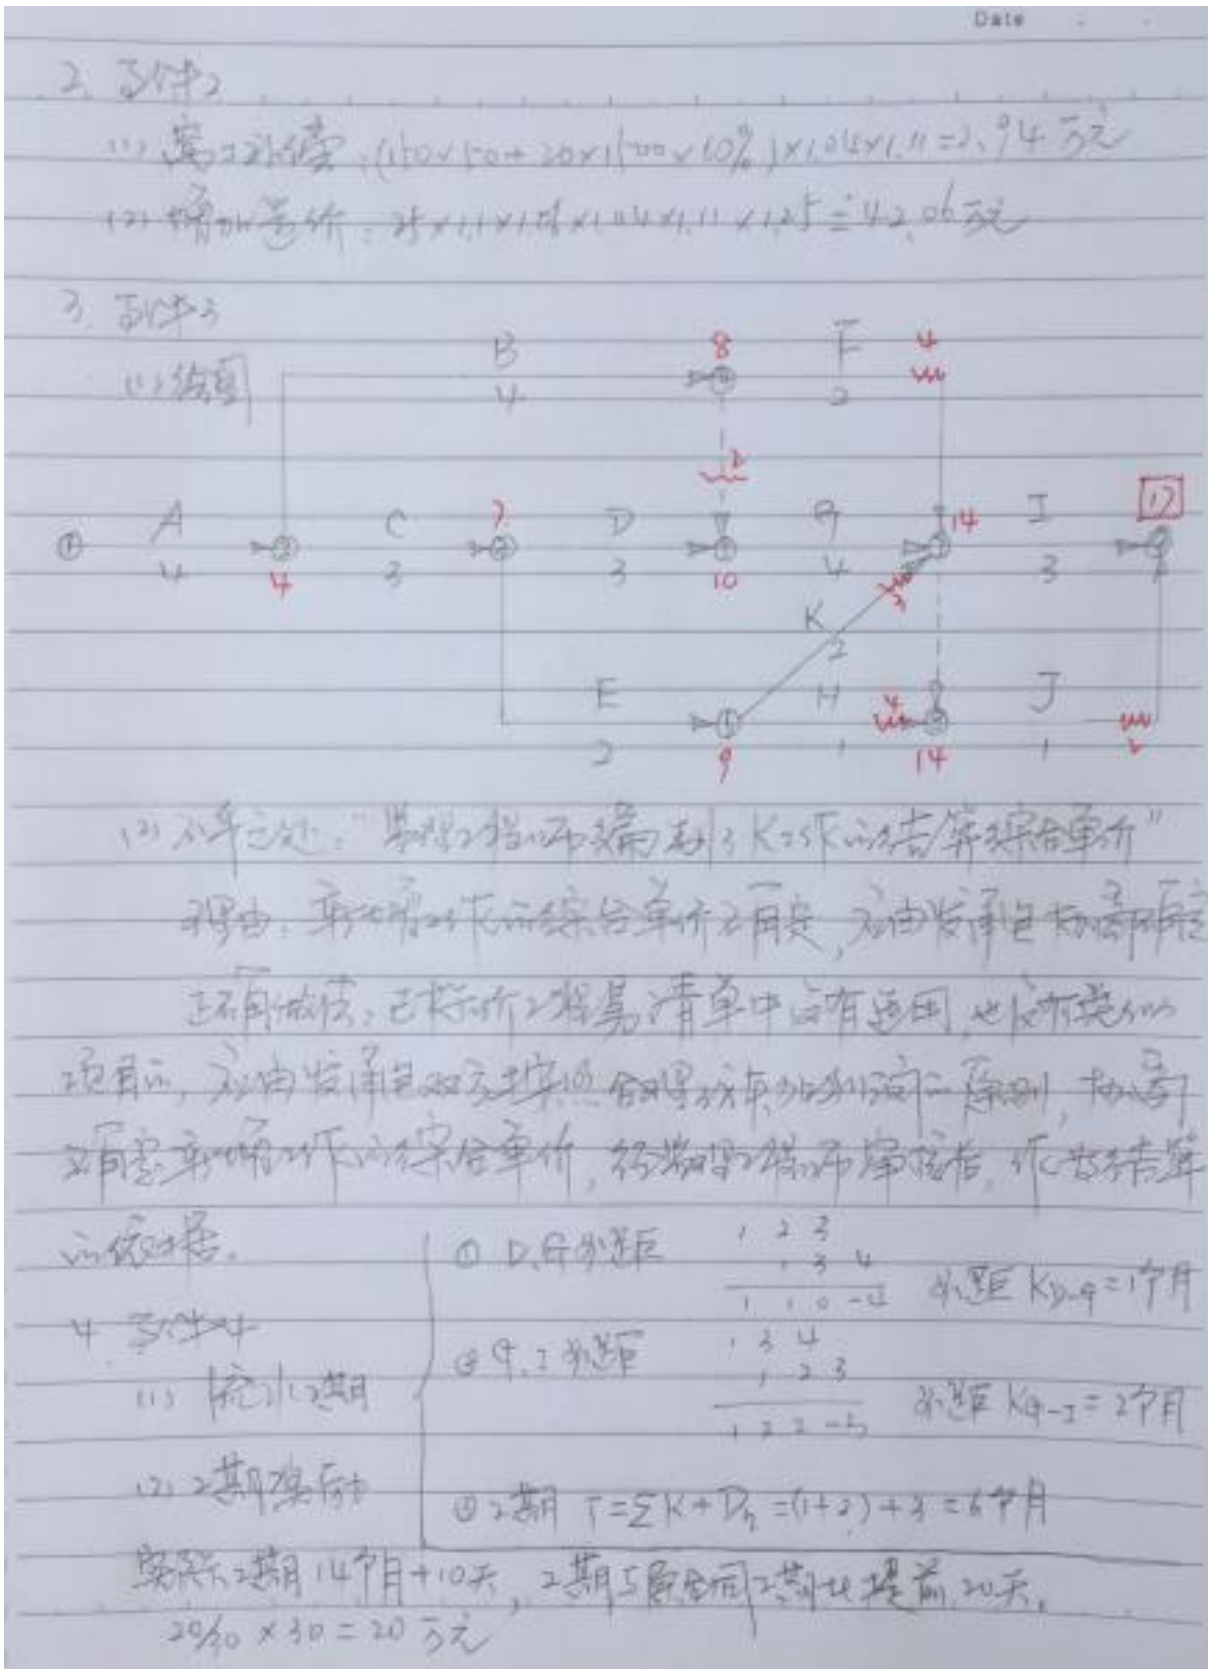 Date
2. 事件2
(1) 窝工补偿：(150×50+20×1500×60%)×1.04×1.11=2.94万元
(2) 增加造价：25×1.1×1.06×1.04×1.11×1.25=42.06万元
3. 事件3
(1) 绘图
B 8 F 4
4 2
A C 7 D G 14 I 17
4 4 3 3 10 4 3
K 2
E H 4 J
2 9 1 14 1 2
(2) 不妥之处："监理工程师编制了K工作的结算综合单价"
理由：新增工作的综合单价确定，应由发承包协商确定
正确做法：已标价工程量清单中没有适用，也没有类似
项目的，应由发承包双方按照合理成本加利润的原则，协商
确定新增工作的综合单价，经监理工程师审核后，作为结算
的依据。
4. 事件4
(1) 流水工期
① D.G步距
1 2 3
1 3 4
1 1 0 -4
步距 KD-G=1个月
② G.I步距
1 3 4
1 2 3
1 2 2 -3
步距 KG-I=2个月
③ 工期 T=ΣK+Dn=(1+2)+3=6个月
(2) 工期奖励
实际工期14个月+10天，工期与原合同工期比提前20天，
20/30×30=20万元